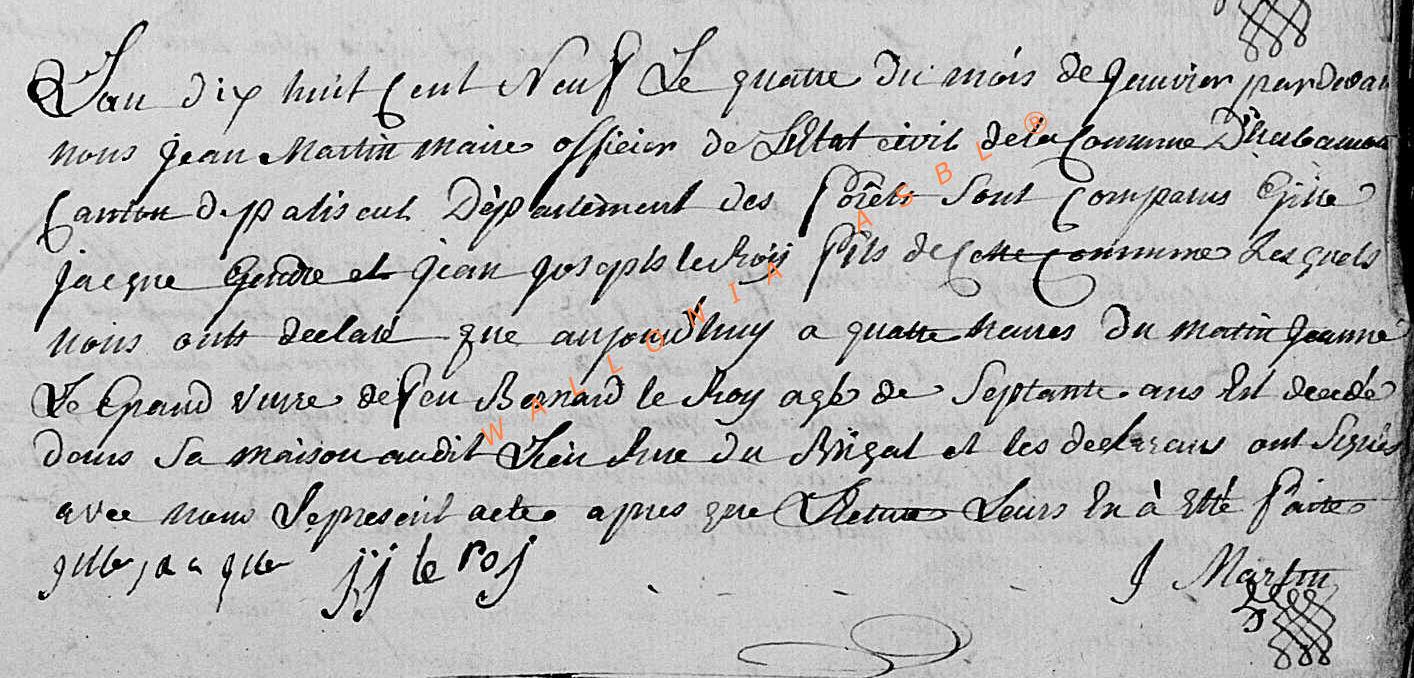 L'an dix huit Cent Neuf Le quatre du mois de Janvier pardevan
nous jean Martin maire officier de L'Etat civil dela Commune D'hubamont
Canton de paliseul Département des Forêts sont Comparus Gille
jacque Gendre et jean joseph le Roij Fils de Cette Commune Lesquels
nous ont declaré que aujourd'huy a quatre heures du matin jeanne
Le Grand veuve de Feu Bernard le Roy agé de septante ans Est decedé
dans sa maison audit Lieu Rue du et les declarans ont signés
avec nous Lepresent acte apres que Lecture Leurs En à Eté Faite
jj le roj J Martin
WALLONIA ASBL ®